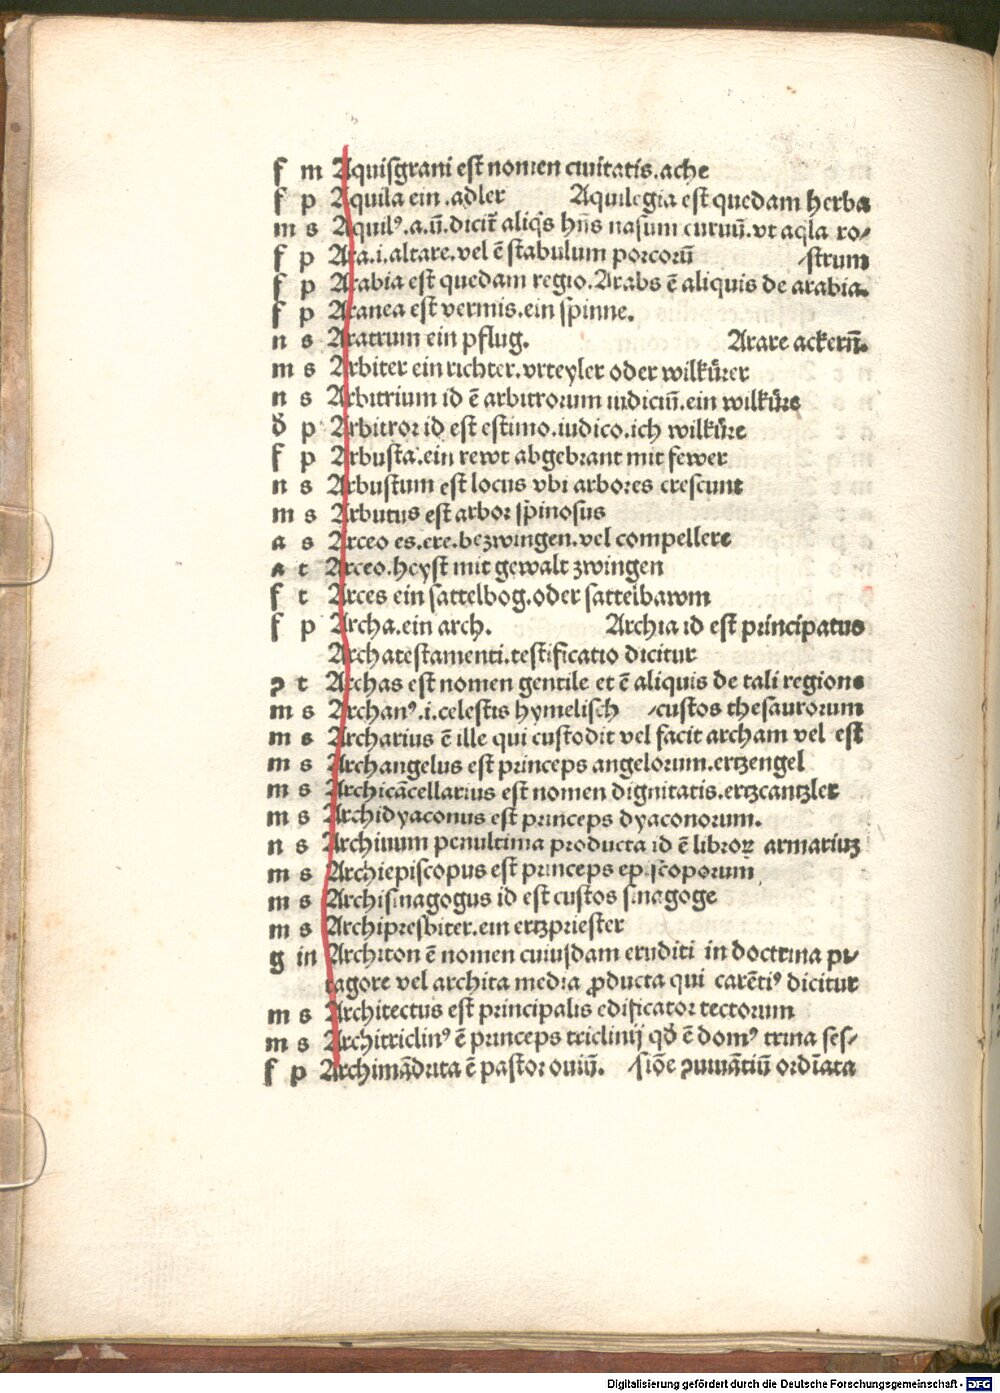 f m Aquisgrani est nomen ciuitatis.ache
f p Aquila ein .adler Aquilegia est quedam herba
m s Aquilꝰ.a.ū.dicit̄ aliq̇s hn̄s nasum curuū.vt aq̇la ro⸗
f p Ara.i.altare.vel ē stabulum porcorū ⸗strum
f p Arabia est quedam regio.Arabs ē aliquis de arabia.
f p Aranea est vermis.ein spinne.
n s Aratrum ein pflug. Arare ackern̄.
m s Arbiter ein richter.vrteyler oder wilkuͤrer
n s Arbitrium id ē arbitrorum iudiciū.ein wilkuͤrs
d̄ p Arbitror id est estimo.iudico.ich wilkuͤre
f p Arbusta.ein rewt abgebrant mit fewer
n s Arbustum est locus vbi arbores crescunt
m s Arbutus est arbor spinosus
a s Arceo es.ere.bezwingen.vel compellere
a t Arceo.heyst mit gewalt zwingen
f t Arces ein sattelbog.oder sattelbawm
f p Archa.ein arch. Archia id est principatus
Archatestamenti.testificatio dicitur
ꝯ t Archas est nomen gentile et ē aliquis de tali regione
m s Archanꝰ.i.celestis hymelisch ⸗custos thesaurorum
m s Archarius ē ille qui custodit vel facit archam vel est
m s Archangelus est princeps angelorum.ertzengel
m s Archicācellarius est nomen dignitatis.ertzcantzler
m s Archidyaconus est princeps dyaconorum.
n s Archiuum penultima producta id ē libroꝝ armariuz
m s Archiepiscopus est princeps episcoporum
m s Archisinagogus id est custos sinagoge
m s Archipresbiter.ein ertzpriester
g in Architon ē nomen cuiusdam eruditi in doctrina pi⸗
tagore vel archita media ꝓducta qui carētiꝰ dicitur
m s Architectus est principalis edificator tectorum
m s Architriclinꝰ ē princeps triclinij qd̄ ē domꝰ trina ses⸗
f p Archimādrita ē pastor ouiū. ⸗siōe ꝯuiuātiū ordīata
Digitalisierung gefördert durch die Deutsche Forschungsgemeinschaft - DFG